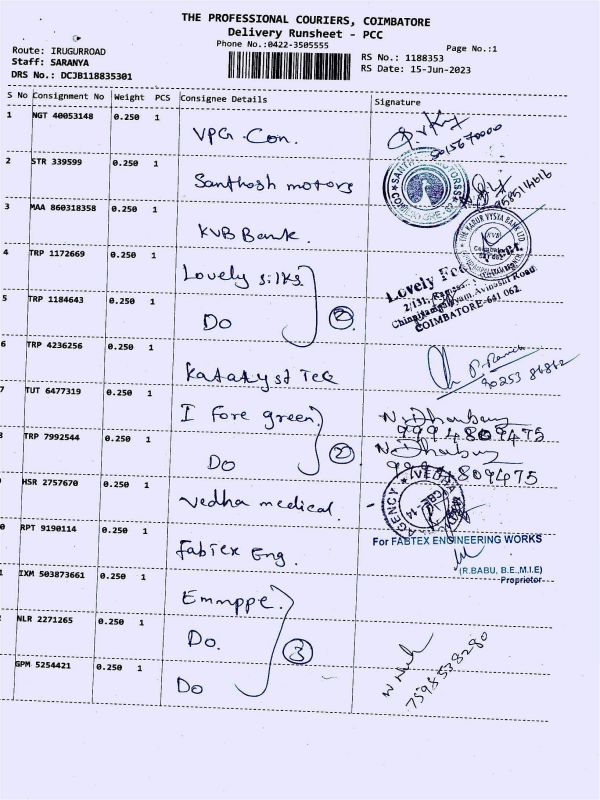 THE PROFESSIONAL COURIERS, COIMBATORE
Delivery Runsheet - PCC
Phone No.:0422-3505555
Page No.:1
Route: IRUGURROAD
Staff: SARANYA
DRS No.: DCJB118835301
RS No.: 1188353
RS Date: 15-Jun-2023
S No Consignment No Weight PCS Consignee Details Signature
1 NGT 40053148 0.250 1 VPG Con.
2 STR 339599 0.250 1 Santhosh motors
3 MAA 860318358 0.250 1 KVB Bank.
THE KARUR VYSYA BANK LTD.
KVB
4 TRP 1172669 0.250 1 Lovely silks
5 TRP 1184643 0.250 1 Do 2
Lovely
Avinashi Road
COIMBATORE-641 062
6 TRP 4236256 0.250 1 Katalyst Tec
7 TUT 6477319 0.250 1 I fore green
N. Dhanbag
9994809475
TRP 7992544 0.250 1 Do 2
809475
HSR 2757670 0.250 1 Vedha medical.
VEDHA AGENCY
CBE-14
0 RPT 9190114 0.250 1 Fabtex Eng.
For FABTEX ENGINEERING WORKS
(R.BABU, B.E.,M.I.E)
Proprietor
1 IXM 503873661 0.250 1 Emmppe.
NLR 2271265 0.250 1 Do. 3
GPM 5254421 0.250 1 Do
7598538280